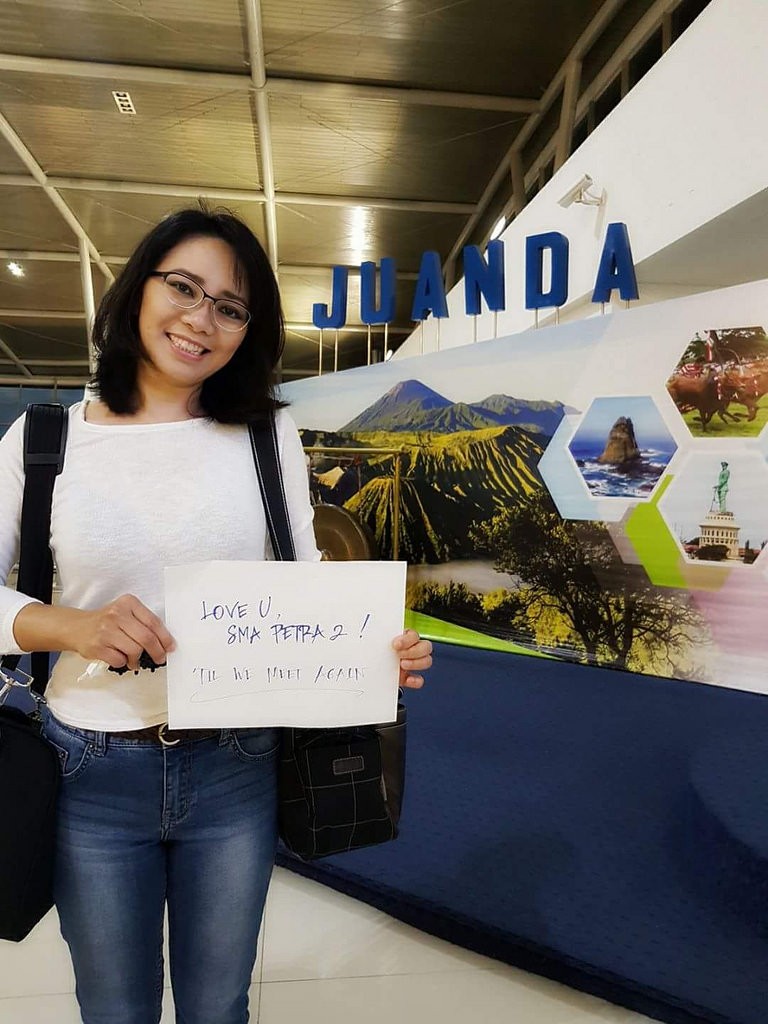 JUANDA
LOVE U,
SMA PETRA 2 !
'TIL WE MEET AGAIN